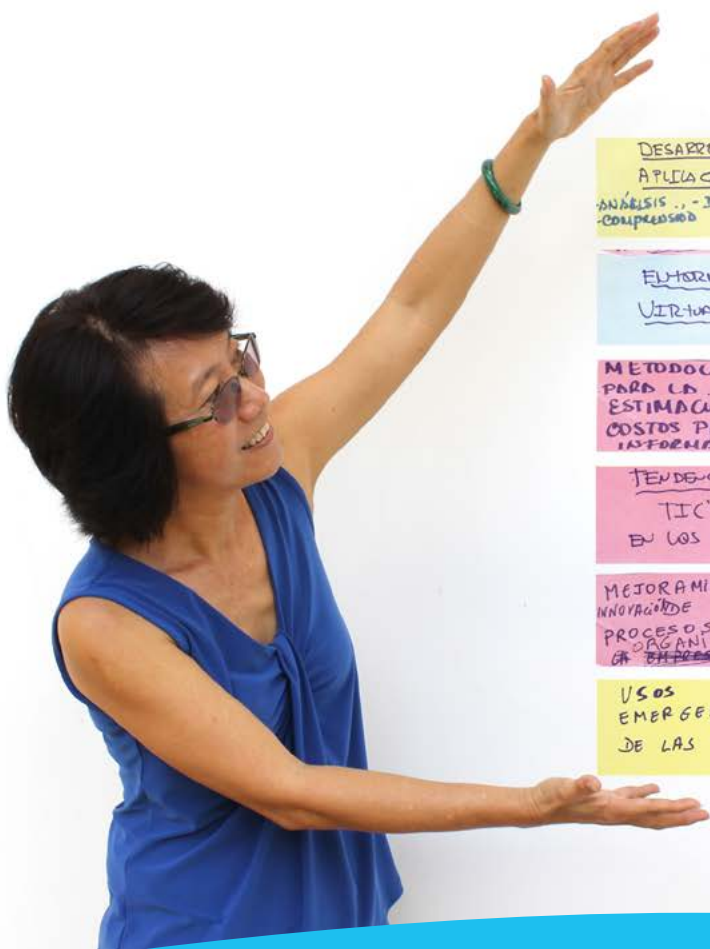 DESARRE
APLICAC
-ANÁLISIS ., - I
-COMPRENSIÓD
ENTOR
VIRTUA
METODOL
PARA LA
ESTIMACI
COSTOS P
INFORMA
TENDENC
TIC'
EN LOS
MEJORAMI
INNOVACIÓNDE
PROCESOS
ORGANI
LA EMPRES
USOS
EMERGE
DE LAS